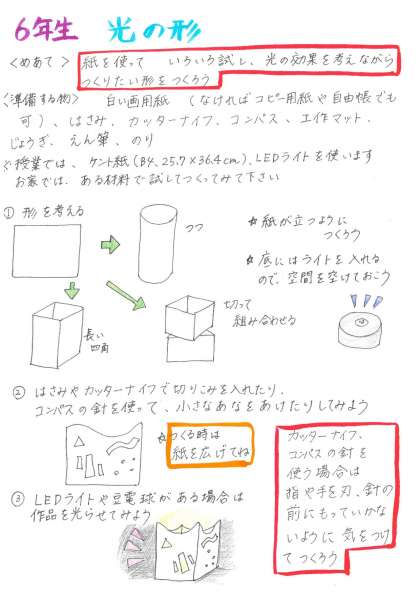 6年生 光の形
<めあて> 紙を使って いろいろ試し、光の効果を考えながら
つくりたい形をつくろう
<準備する物> 白い画用紙 (なければコピー用紙や自由帳でも
可)、はさみ、カッターナイフ、コンパス、工作マット、
じょうぎ、えん筆、のり
授業では、ケント紙(B4、25.7×36.4cm)、LEDライトを使います
お家では、ある材料で試してつくってみて下さい
① 形を考える
つつ
☆紙が立つように
つくろう
☆底にはライトを入れる
ので、空間を空けておこう
長い
四角
切って
組み合わせる
② はさみやカッターナイフで切りこみを入れたり、
コンパスの針を使って、小さなあなをあけたりしてみよう
☆つくる時は
紙を広げてね
カッターナイフ、
コンパスの針を
使う場合は
指や手を刃、針の
前にもっていかな
いように気をつけ
てつくろう
③ LEDライトや豆電球がある場合は
作品を光らせてみよう